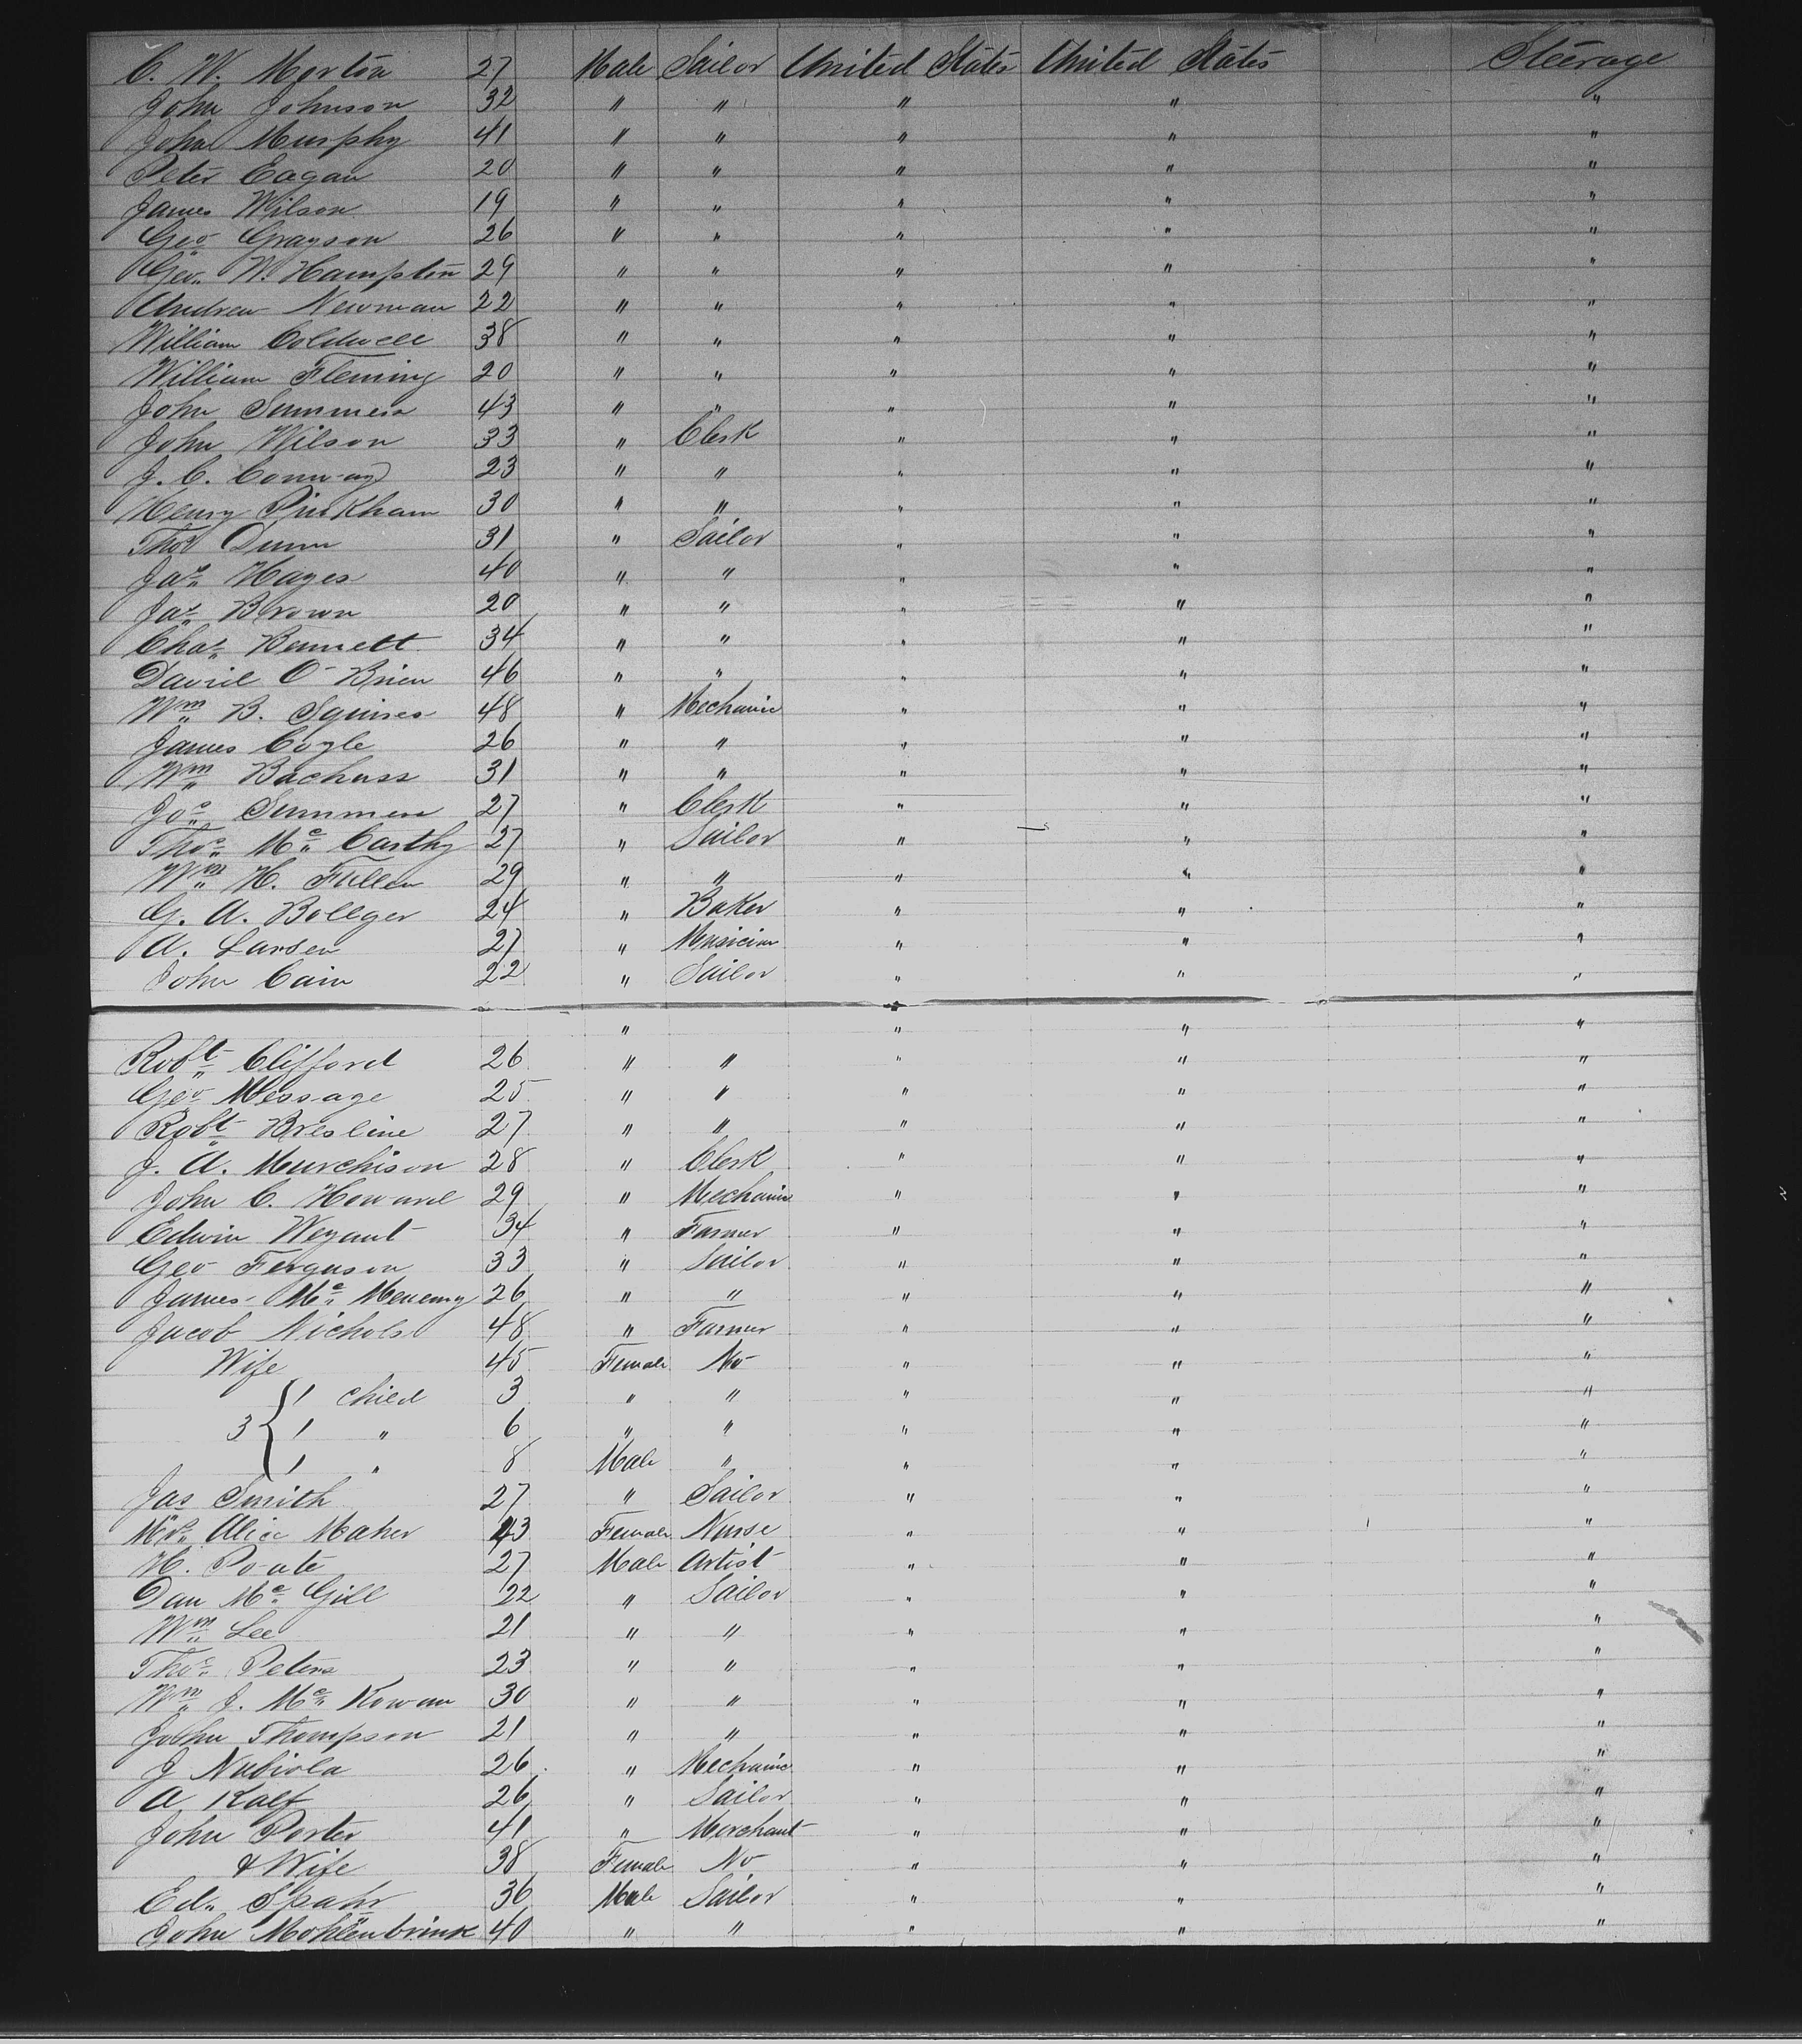 C. W. Morton 27 Male Sailor United States United States Steerage
John Johnson 32 " " " " "
John Murphy 41 " " " " "
Peter Eagan 20 " " " " "
James Wilson 19 " " " " "
Geo Grayson 26 " " " " "
Geo. W. Hampton 29 " " " " "
Andrew Newman 22 " " " " "
William Coldwell 38 " " " " "
William Fleming 20 " " " " "
John Summers 43 " " " " "
John Wilson 33 " Clerk " " "
J. C. Conway 23 " " " " "
Henry Pinkham 30 " " " " "
Thos Dunn 31 " Sailor " " "
Jas Hayes 40 " " " " "
Jas Brown 20 " " " " "
Chas Bennett 34 " " " " "
David O'Brien 46 " " " " "
Wm B. Squires 48 " Mechanic " " "
James Cogle 26 " " " " "
Wm Bachuss 31 " " " " "
Jos Summers 27 " Clerk " " "
Thos Mc Carthy 27 " Sailor " " "
Wm H. Fuller 29 " " " " "
G. A. Bollger 24 " Baker " " "
A. Larsen 27 " Musician " " "
John Cain 22 " Sailor " " "
" " " "
Robt Clifford 26 " " " " "
Geo Message 25 " " " " "
Robt Bresline 27 " " " " "
J. A. Murchison 28 " Clerk " " "
John C. Howard 29 " Mechanic " " "
Edwin Weyant 34 " Farmer " " "
Geo Ferguson 33 " Sailor " " "
James Mc Menemy 26 " " " " "
Jacob Nichols 48 " Farmer " " "
Wife 45 Female No " " "
1 child 3 " " " " "
3 { 1 " 6 " " " " "
1 " 8 Male " " " "
Jas Smith 27 " Sailor " " "
Mrs. Alice Maher 43 Female Nurse " " "
H. Poate 27 Male Artist " " "
Dan Mc Gill 22 " Sailor " " "
Wm Lee 21 " " " " "
Thos Peters 23 " " " " "
Wm J. Mc Kowan 30 " " " " "
John Thompson 21 " " " " "
J Nubiola 26 " Mechanic " " "
A Kalf 26 " Sailor " " "
John Porter 41 " Merchant " " "
& Wife 38 Female No " " "
Ed. Spahr 36 Male Sailor " " "
John Mohlenbrink 40 " " " " "